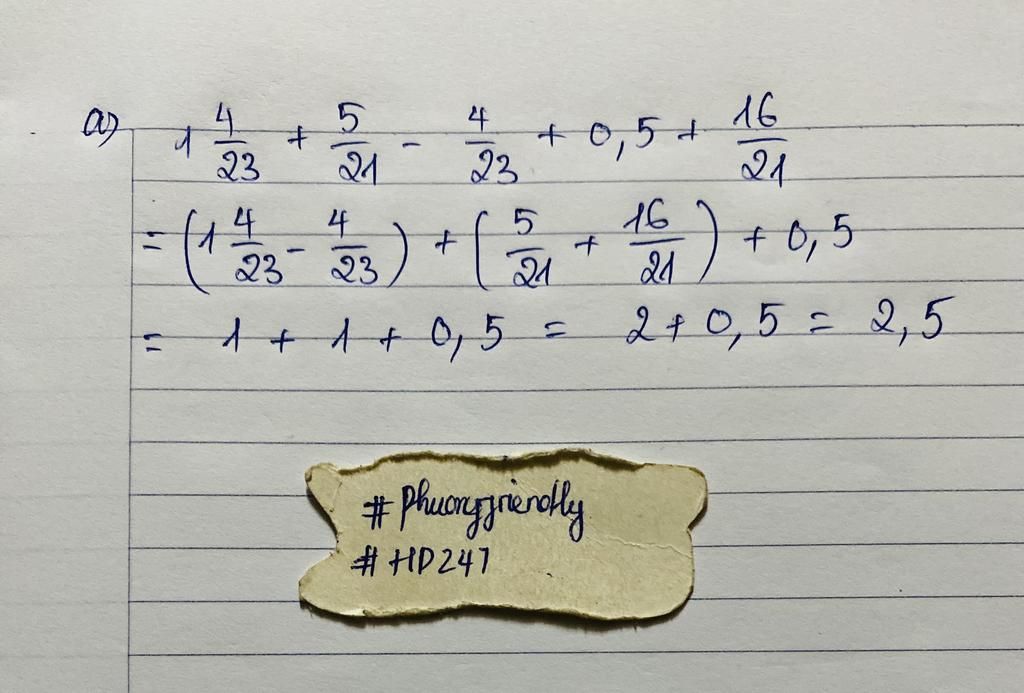 a) 1 4/23 + 5/21 - 4/23 + 0,5 + 16/21
= (1 4/23 - 4/23) + (5/21 + 16/21) + 0,5
= 1 + 1 + 0,5 = 2 + 0,5 = 2,5
# Phuongfriendly
# HD247